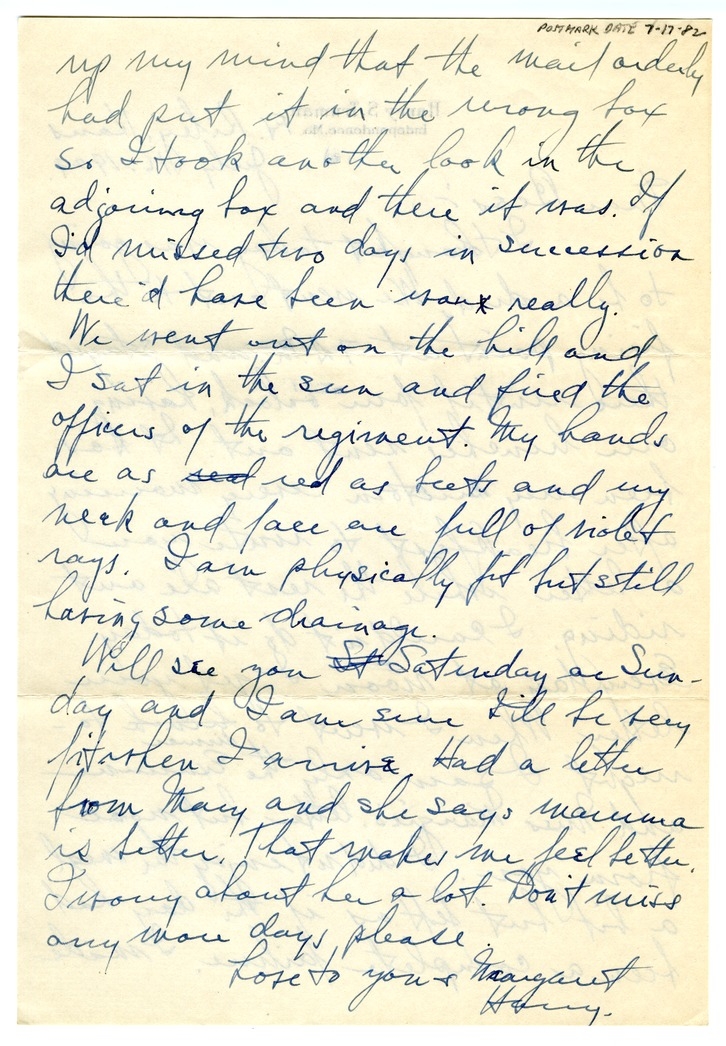 POSTMARK DATE 7-17-32
up my mind that the mail orderly
had put it in the wrong box
so I took another look in the
adjoining box and there it was. If
I'd missed two days in succession
there'd have been really.
We went out on the hill and
I sat in the sun and fired the
officers of the regiment. My hands
are as red as beets and my
neck and face are full of violet
rays. I am physically fit but still
having some drainage.
Will see you St Saturday or Sun-
day and I am sure I'll be very
fit when I arrive Had a letter
from Mary and she says mamma
is better. That makes me feel better.
I worry about her a lot. Don't miss
any more days please.
Love to you & Margaret
Harry.